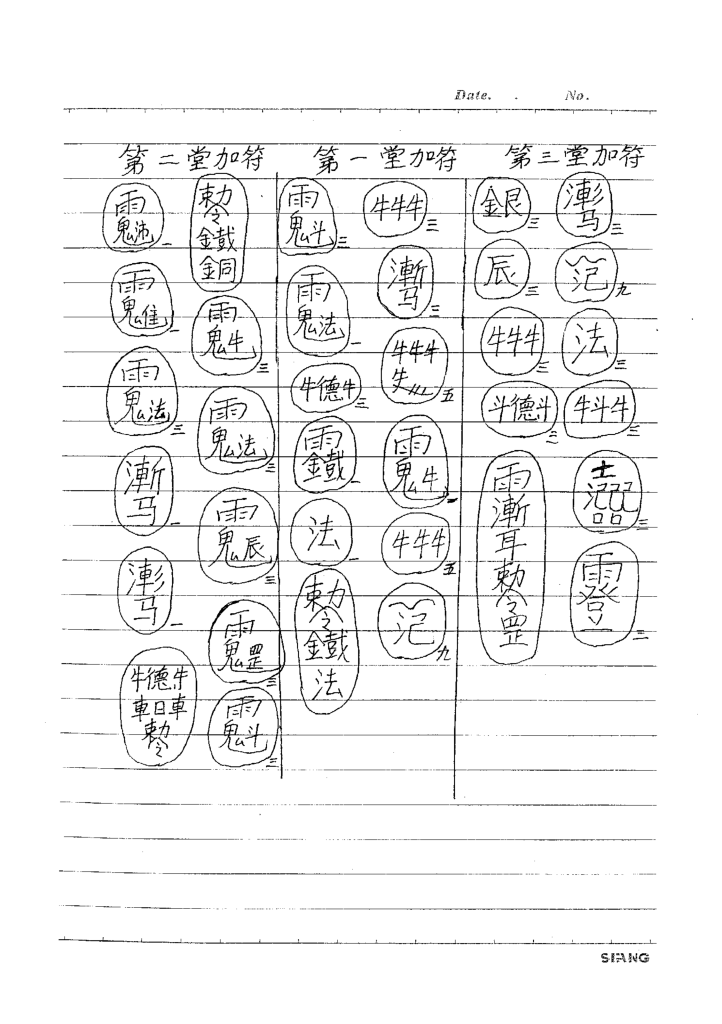 Date. . No.
第二堂加符 第一堂加符 第三堂加符
漸马 三
氾 九
法 三
牛斗牛 三
三
二
銀 三
辰 三
牛牛牛 三
斗德斗 三
雨漸耳勅令罡
牛牛牛 三
漸马 三
牛牛牛 五
雨鬼牛 一
牛牛牛 五
氾 九
雨鬼斗 三
雨鬼法 一
牛德牛 三
雨鐵 一
法 一
勅令鐵法
勅令鐵銅
雨鬼牛 三
雨鬼法 三
雨鬼辰 三
雨鬼罡 三
雨鬼斗 三
雨鬼 一
雨鬼隹 一
雨鬼法 三
漸马 一
漸马 一
牛德牛
車日車
勅令
SIANG